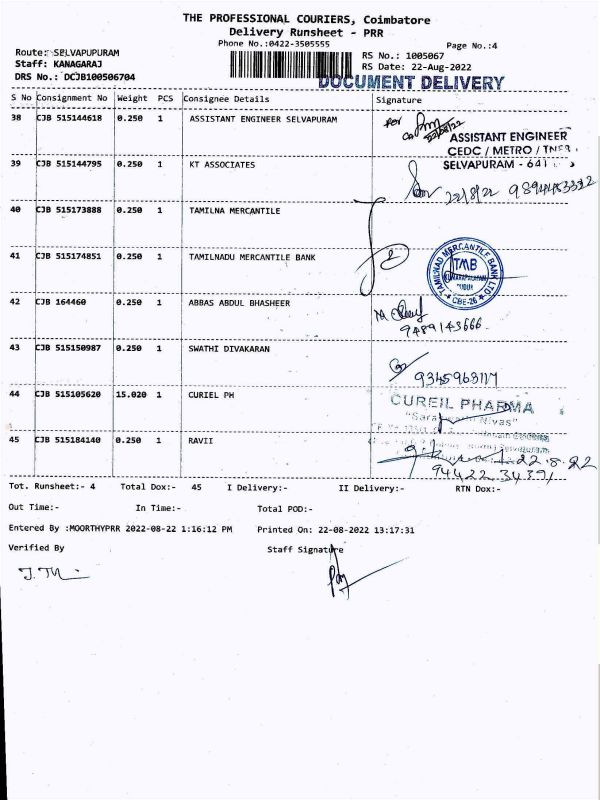 THE PROFESSIONAL COURIERS, Coimbatore
Delivery Runsheet - PRR
Phone No.:0422-3505555
Page No.:4
Route: SELVAPUPURAM
Staff: KANAGARAJ
DRS No.: DCJB100506704
RS No.: 1005067
RS Date: 22-Aug-2022
DOCUMENT DELIVERY
S No Consignment No Weight PCS Consignee Details Signature
38 CJB 515144618 0.250 1 ASSISTANT ENGINEER SELVAPURAM
ASSISTANT ENGINEER
CEDC / METRO /
SELVAPURAM - 641
39 CJB 515144795 0.250 1 KT ASSOCIATES
22/8/22
40 CJB 515173888 0.250 1 TAMILNA MERCANTILE
41 CJB 515174851 0.250 1 TAMILNADU MERCANTILE BANK
TAMILNAD MERCANTILE BANK LTD
TMB
CBE-26
42 CJB 164460 0.250 1 ABBAS ABDUL BHASHEER
9489143666.
43 CJB 515150987 0.250 1 SWATHI DIVAKARAN
44 CJB 515105620 15.020 1 CURIEL PH
CUREIL PHARMA
45 CJB 515184140 0.250 1 RAVII
22.8.22
94422 34391
Tot. Runsheet:- 4 Total Dox:- 45 I Delivery:- II Delivery:- RTN Dox:-
Out Time:- In Time:- Total POD:-
Entered By :MOORTHYPRR 2022-08-22 1:16:12 PM Printed On: 22-08-2022 13:17:31
Verified By Staff Signature